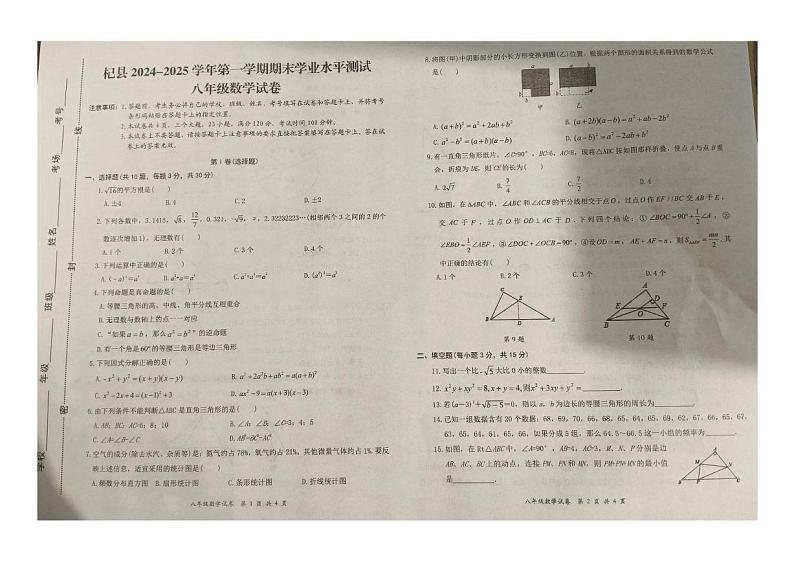 杞县 2024-2025 学年第一学期期末学业水平测试
八年级数学试卷
注意事项：1.答题前，考生务必将自己的学校、班级、姓名、考号填写在试卷和答题卡上，并将考号
条形码粘贴在答题卡上的指定位置。
2.本试卷共 4 页，三个大题，23 小题，满分 120 分，考试时间 100 分钟。
3.本试卷上不要答题，请按答题卡上注意事项的要求直接把答案填写在答题卡上，答在试
卷上的答案无效。
第Ⅰ卷(选择题)
一、选择题(共 10 题，每题 3 分，共 30 分)
1.√16的平方根是( )
A.±4 B.4 C.2 D.±2
2.下列各数中，3.1415，√8，12/7，0.321，-√9，π，2.32232223…(相邻两个 3 之间的 2 的个
数逐次增加 1)，无理数有( )
A.1 个 B.2 个 C.3 个 D.4 个
3.下列运算中正确的是( )
4.下列命题是真命题的是( )
A.等腰三角形的高、中线、角平分线互相重合
B.无理数与数轴上的点一一对应
C.“如果 a = b，那么 a² = b²”的逆命题
D.有一个角是60°的等腰三角形是等边三角形
5.下列因式分解正确的是( )
A. -x² + y² = (x + y)(x - y) B. a³ + 2a²b + ab² = a(a + b)²
C. x² - 2x + 4 = (x - 1)² + 3 D. ax² - 9 = a(x + 3)(x - 3)
6.由下列条件不能判断△ABC 是直角三角形的是( )
A.AB：BC：AC=6：8：10 B.∠A：∠B：∠C=3：4：5
C.∠A-∠B=∠C D.AB²=BC²-AC²
7.空气的成分(除去水汽、杂质等)是：氮气约占 78%，氧气约占 21%，其他微量气体约占 1%.要反
映上述信息，适宜采用的统计图是( )
A.频数分布直方图 B.扇形统计图 C.条形统计图 D.折线统计图
八年级数学试卷 第 1 页 共 4 页
8.将图(甲)中阴影部分的小长方形变换到图(乙)位置，根据两个图形的面积关系得到的数学公式
是( )
甲 乙
A. (a + b)² = a² + 2ab + b² B. (a + 2b)(a - b) = a² + ab - 2b²
C. a² - b² = (a + b)(a - b) D. (a - b)² = a² - 2ab + b²
9.有一直角三角形纸片，∠C=90°，BC=6，AC=8，现将△ABC 按如图那样折叠，使点 A 与点 B 重
合，折痕为 DE，则 CE 的长为( )
A. 2√7 B. 7/4 C. 7/2 D. 4
10.如图，在△ABC 中，∠ABC 和∠ACB 的平分线相交于点 O，过点 O 作 EF // BC 交 AB 于 E，
交 AC 于 F，过点 O 作 OD ⊥ AC 于 D．下列四个结论：①∠BOC = 90° + 1/2∠A，②
∠EBO = 1/2∠AEF，③∠DOC + ∠OCB = 90°，④设OD = m，AE + AF = n，则S△AEF = mn/2．其
中正确的结论有( )
A.1 个 B.2 个 C.3 个 D.4 个
第 9 题 第 10 题
二、填空题(每小题 3 分，共 15 分)
11.写出一个比-√5大比 0 小的整数
12. x²y + xy² = 8, x + y = 4, 则x² + 3xy + y² =
13.若(a-3)²+√b-5=0，则以 a，b 为边长的等腰三角形的周长为
14.已知一组数据含有 20 个数据：68，69，70，66，68，65，64，65，69，62，67，66，65，67，
63，65，64，61，65，66，如果分成 5 组，那么 64.5~66.5 这一小组的频率为
15.如图，在 Rt△ABC中，∠A=90°，AB=4，AC=3，M、N、P 分别是边
AB、AC、BC上的动点，连接 PM、PN和 MN，则 PM+PN+MN 的最小值
是
八年级数学试卷 第 2 页 共 4 页
学校 年级 班级 姓名 考场 考号
密 封 线